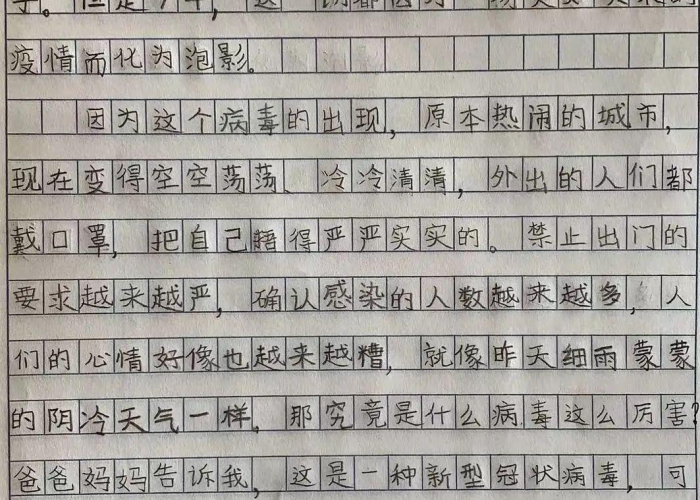 疫情而化为泡影。
因为这个病毒的出现，原本热闹的城市，
现在变得空空荡荡、冷冷清清，外出的人们都
戴口罩，把自己捂得严严实实的。禁止出门的
要求越来越严，确认感染的人数越来越多，人
们的心情好像也越来越糟，就像昨天细雨蒙蒙
的阴冷天气一样。那究竟是什么病毒这么厉害？
爸爸妈妈告诉我，这是一种新型冠状病毒，可